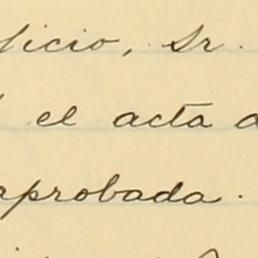 ficio, Sr.
el acta d
aprobada.